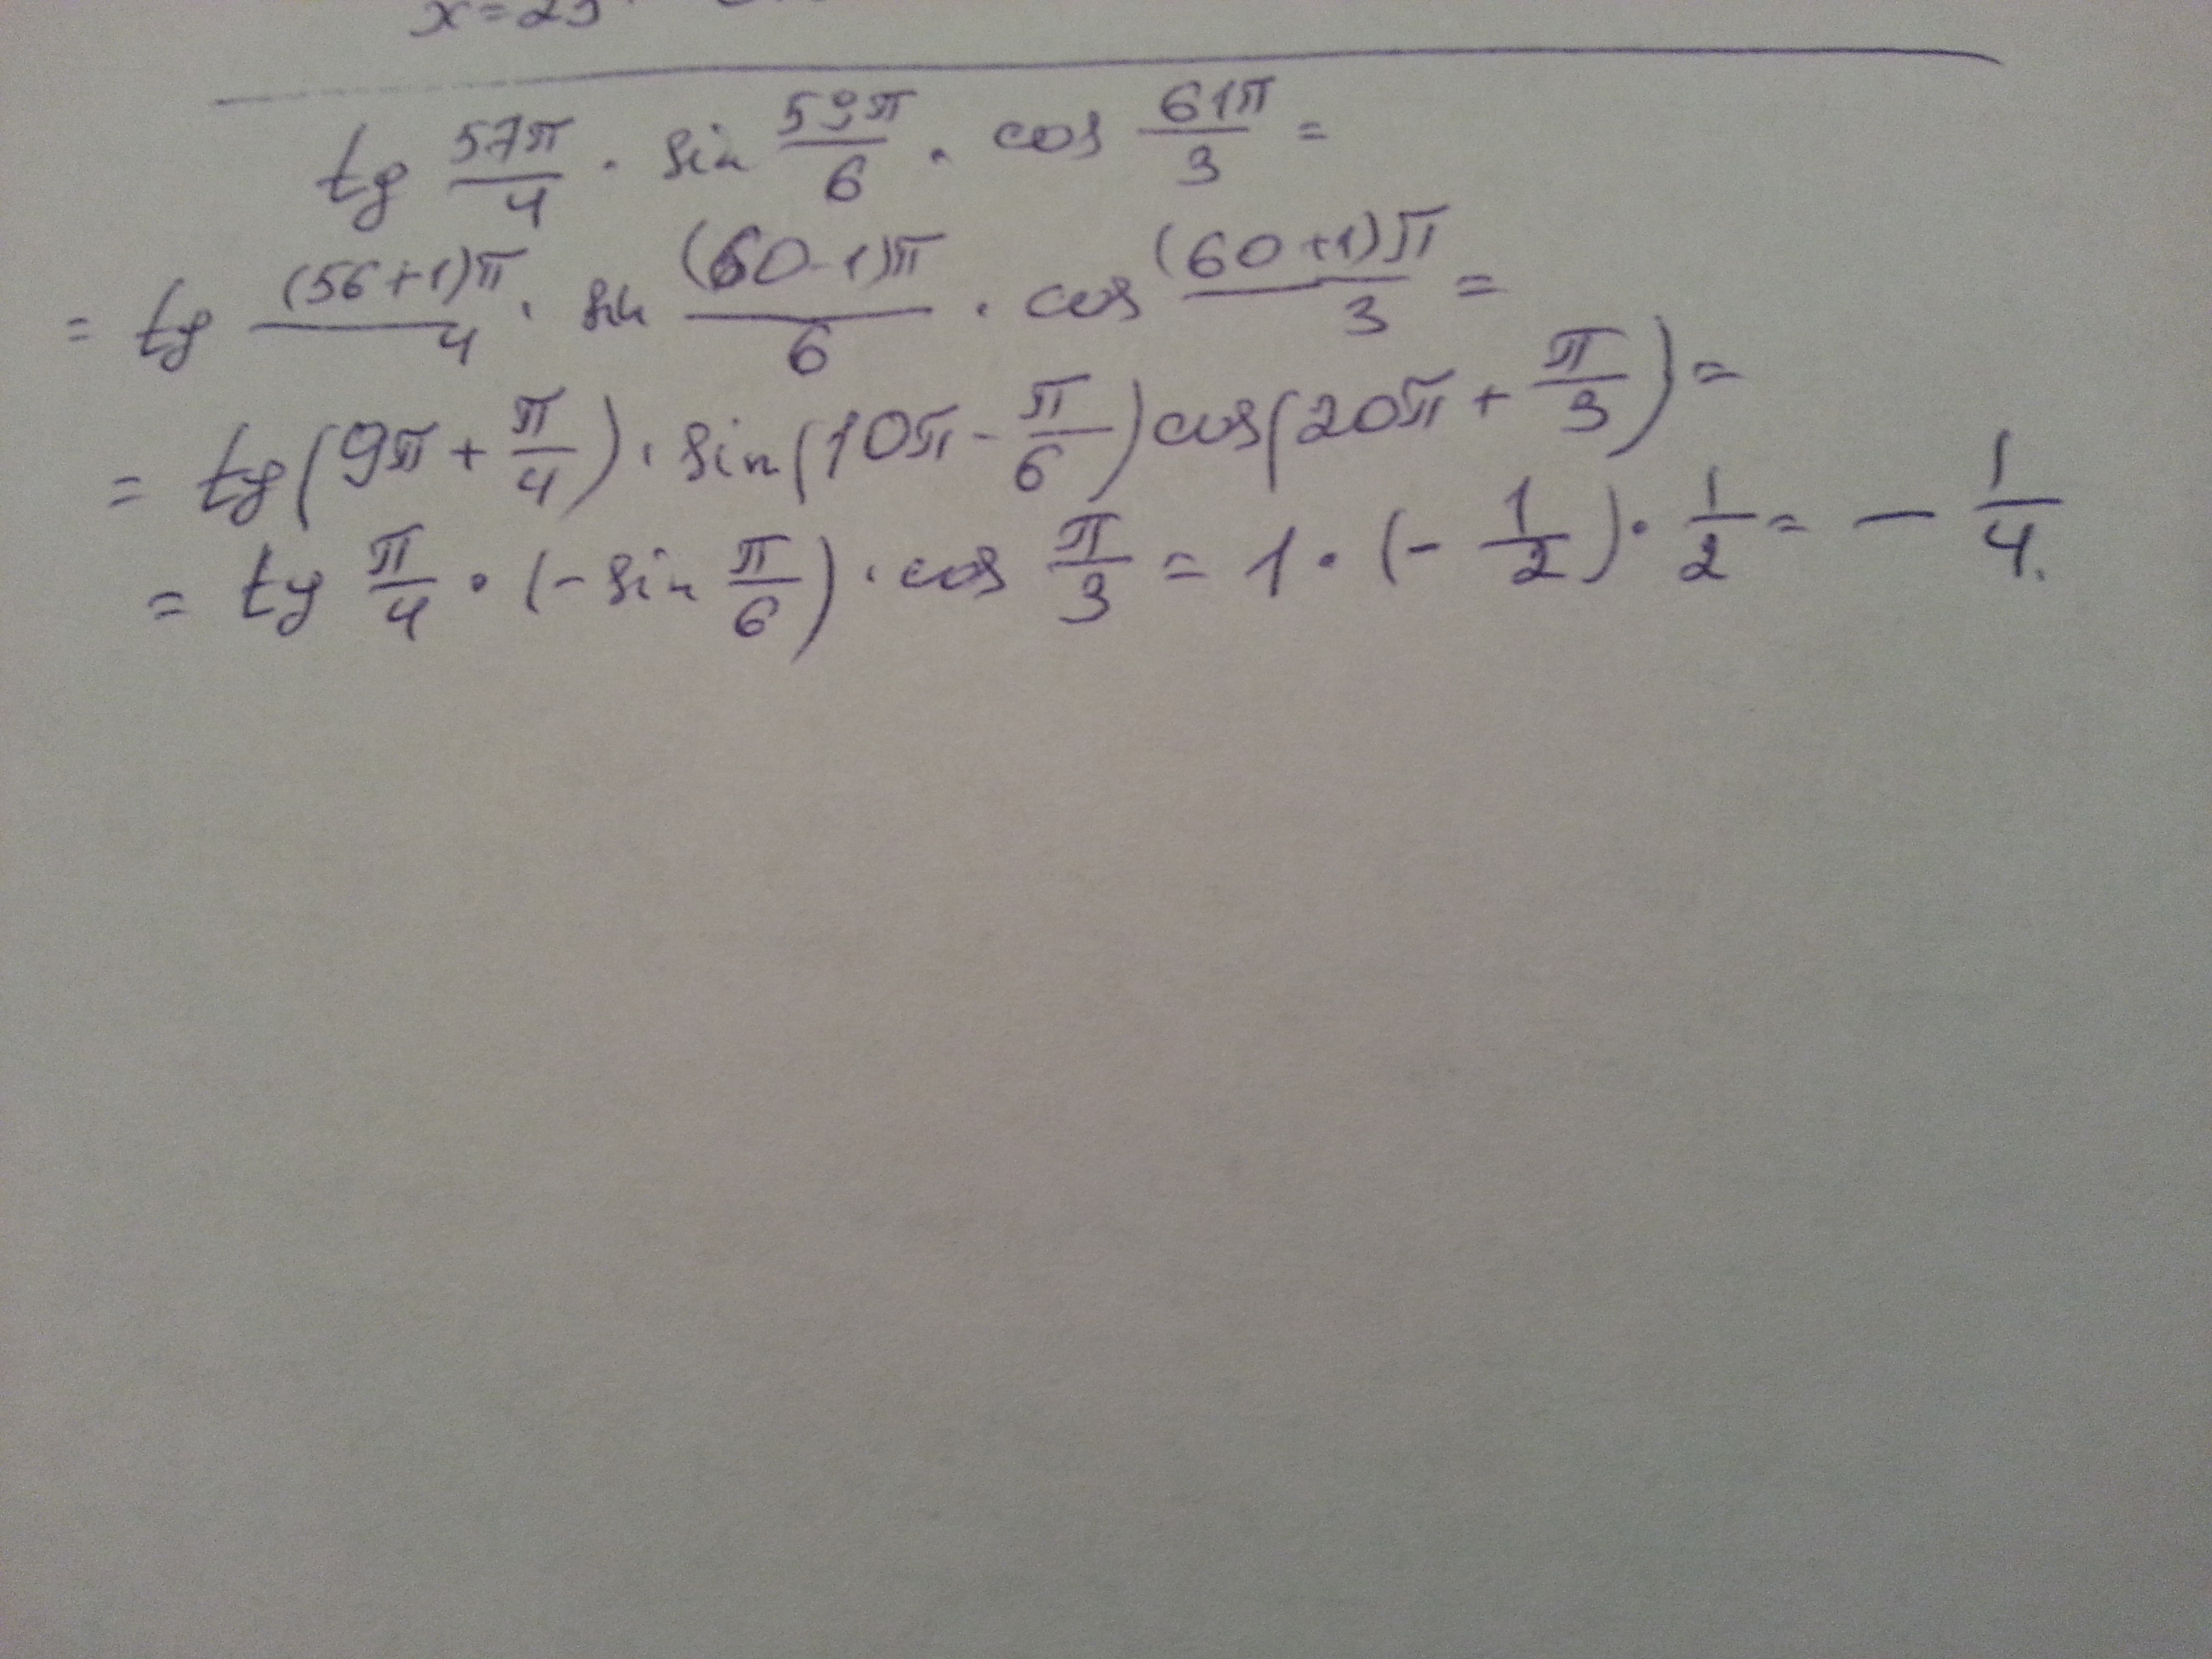 x=25
tg 57π/4 · sin 59π/6 · cos 61π/3 =
= tg (56+1)π/4 · sin (60-1)π/6 · cos (60+1)π/3 =
= tg(9π + π/4) · sin(10π - π/6) cos(20π + π/3) =
= tg π/4 · (- sin π/6) · cos π/3 = 1 · (- 1/2) · 1/2 = - 1/4.